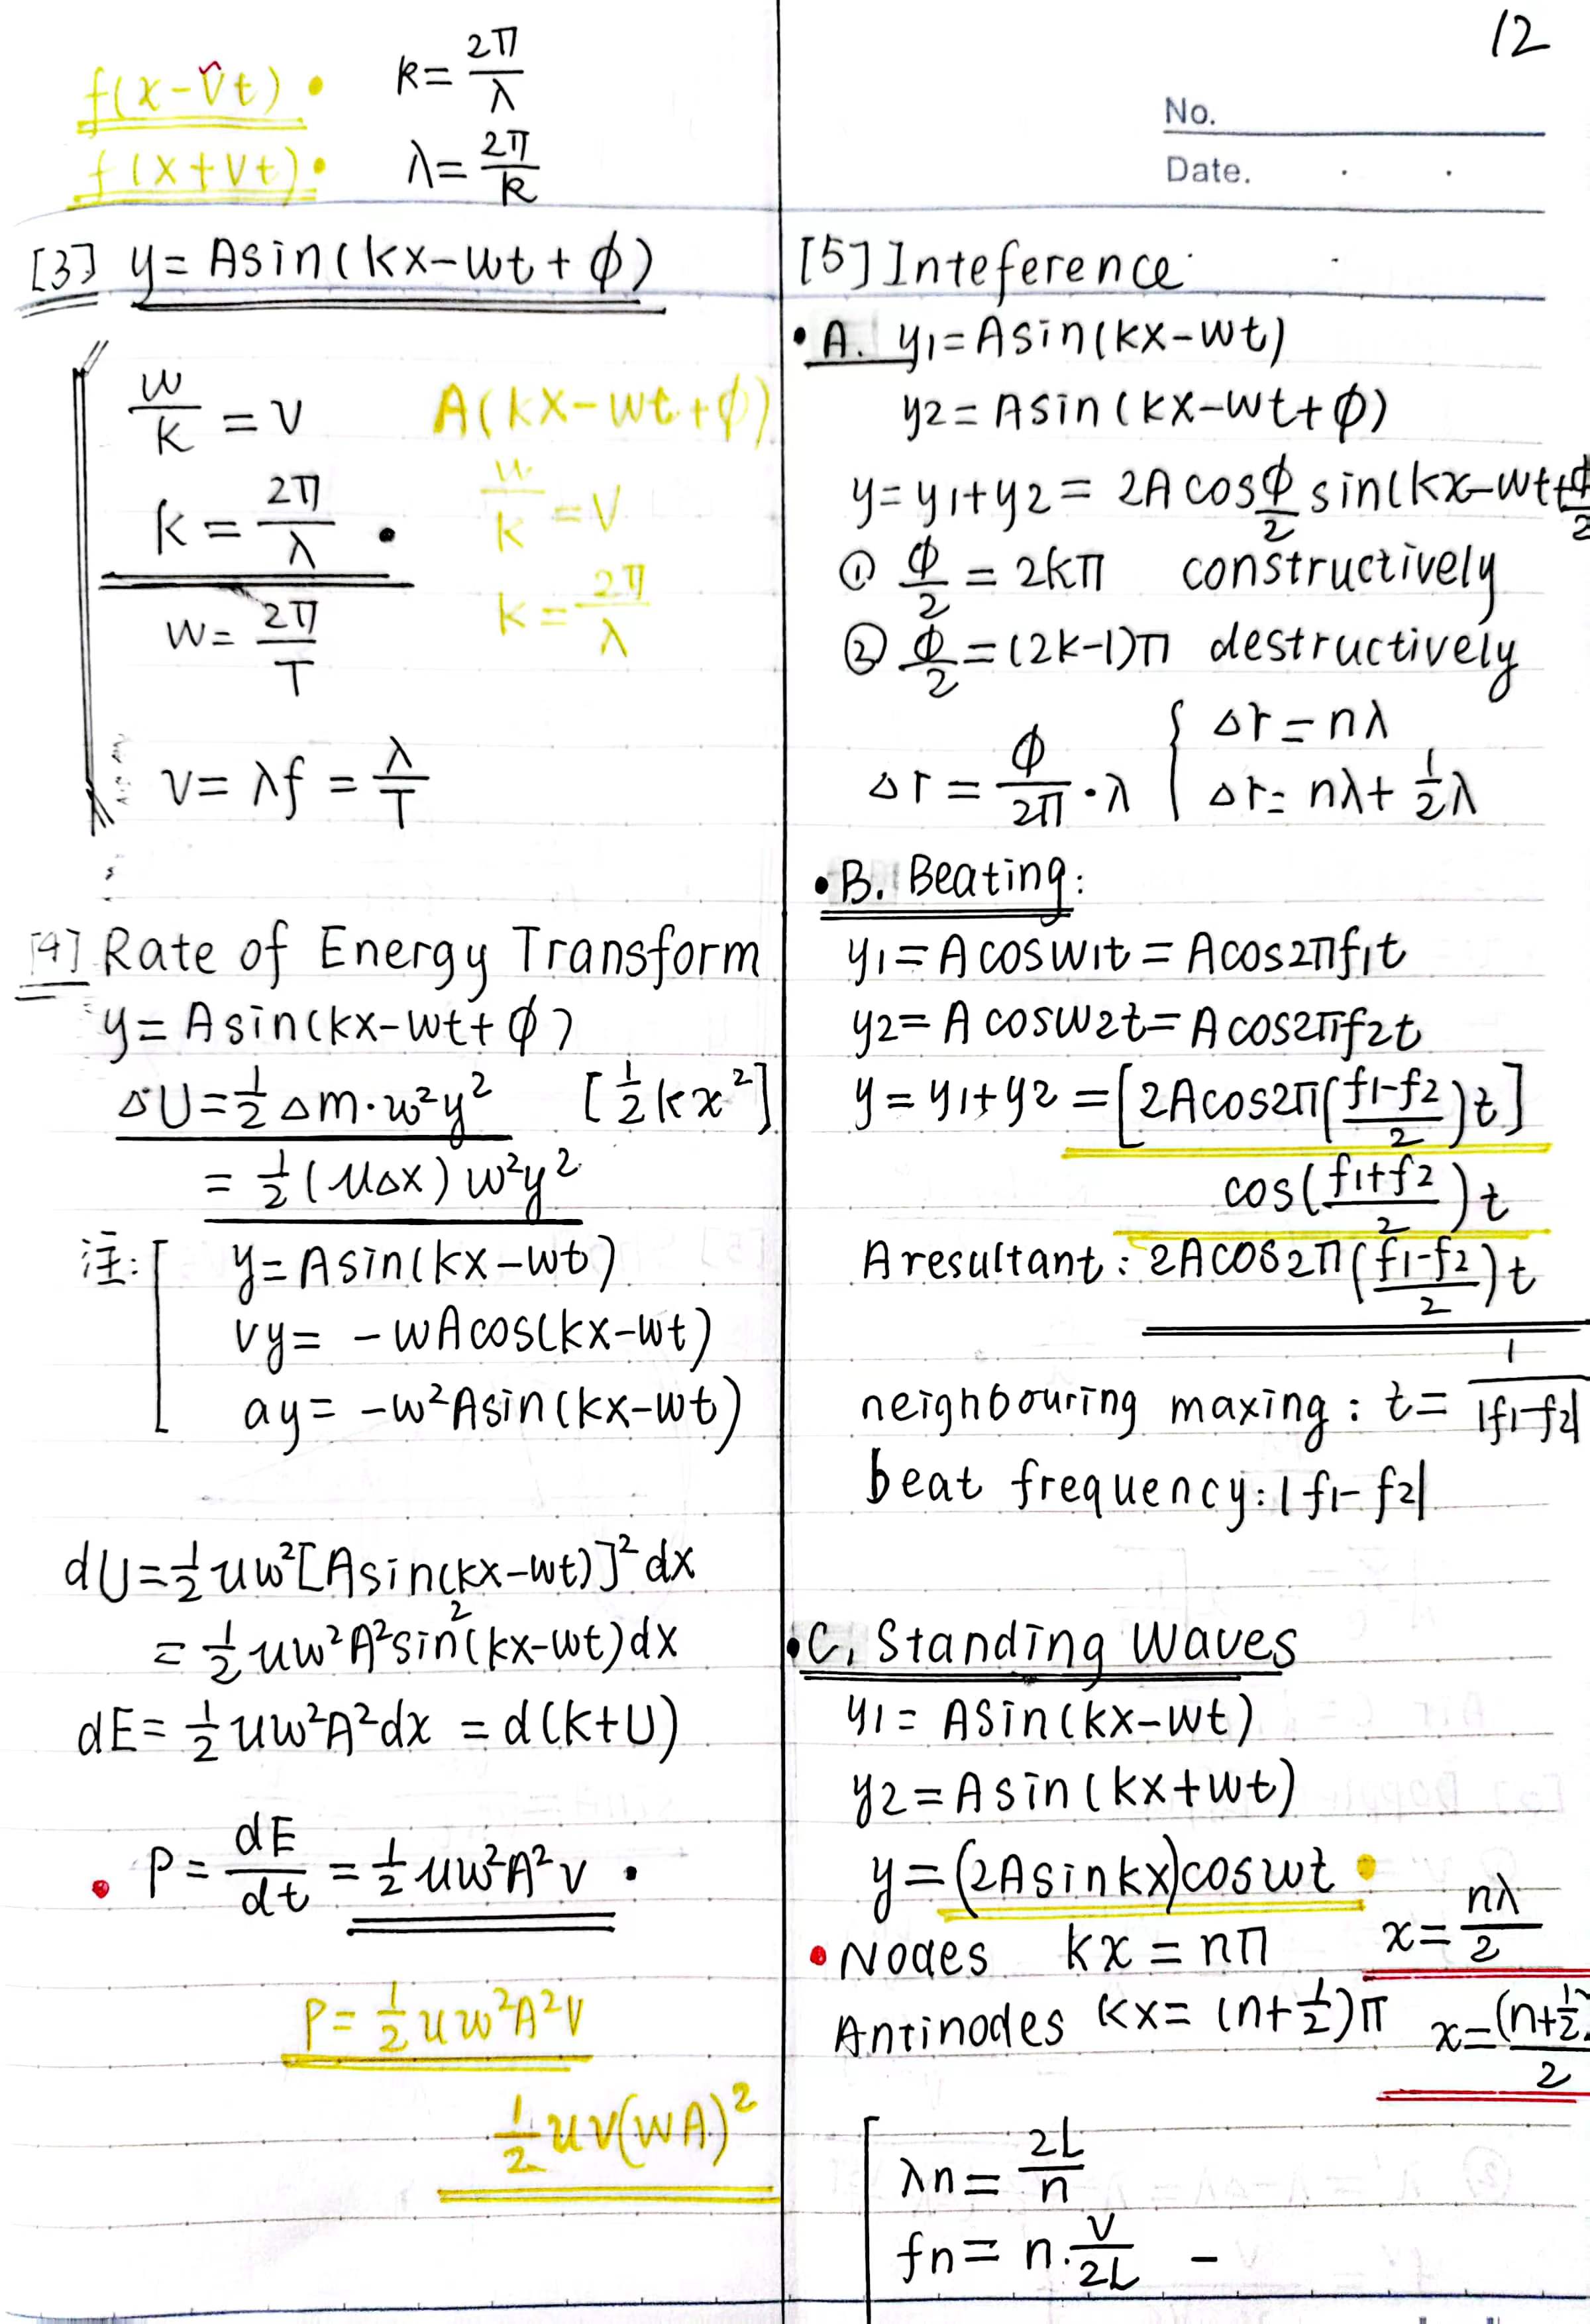 12
No.
Date.
f(x-vt) • k=2π/λ
f(x+vt) • λ=2π/k
[3] y=Asin(kx-wt+φ)
w/k = v
k = 2π/λ •
w= 2π/T
v= λf = λ/T
A(kx-wt+φ)
w/k = v
k = 2π/λ
[4] Rate of Energy Transform
y= Asin(kx-wt+φ)
△U=1/2 △m·w²y² [1/2 kx²]
= 1/2(u△x) w²y²
注: y= Asin(kx-wt)
vy= -wAcos(kx-wt)
ay= -w²Asin(kx-wt)
dU=1/2 uw²[Asin(kx-wt)]² dx
= 1/2 uw²A²sin²(kx-wt)dx
dE= 1/2 uw²A²dx = d(k+U)
• P= dE/dt = 1/2 uw²A²v •
P= 1/2 uw²A²v
1/2 uv(wA)²
[5] Inteference
• A. y1=Asin(kx-wt)
y2= Asin(kx-wt+φ)
y= y1+y2= 2A cos φ/2 sin(kx-wt+φ/2
① φ/2 = 2kπ constructively
② φ/2 =(2k-1)π destructively
△r = φ/2π · λ { △r = nλ
△r= nλ+ 1/2 λ
• B. Beating:
y1= A cosw1t = Acos2πf1t
y2= A cosw2t= A cos2πf2t
y= y1+y2 =[2Acos2π(f1-f2/2)t]
cos(f1+f2/2)t
A resultant: 2Acos2π(f1-f2/2)t
neighbouring maxing: t= 1/|f1-f2|
beat frequency: |f1-f2|
• C. Standing Waves
y1= Asin(kx-wt)
y2=Asin(kx+wt)
y=(2Asinkx)coswt •
• Nodes kx = nπ x= nλ/2
Antinodes kx= (n+1/2)π x=(n+1/2)/2
λn= 2L/n
fn= n·v/2L -